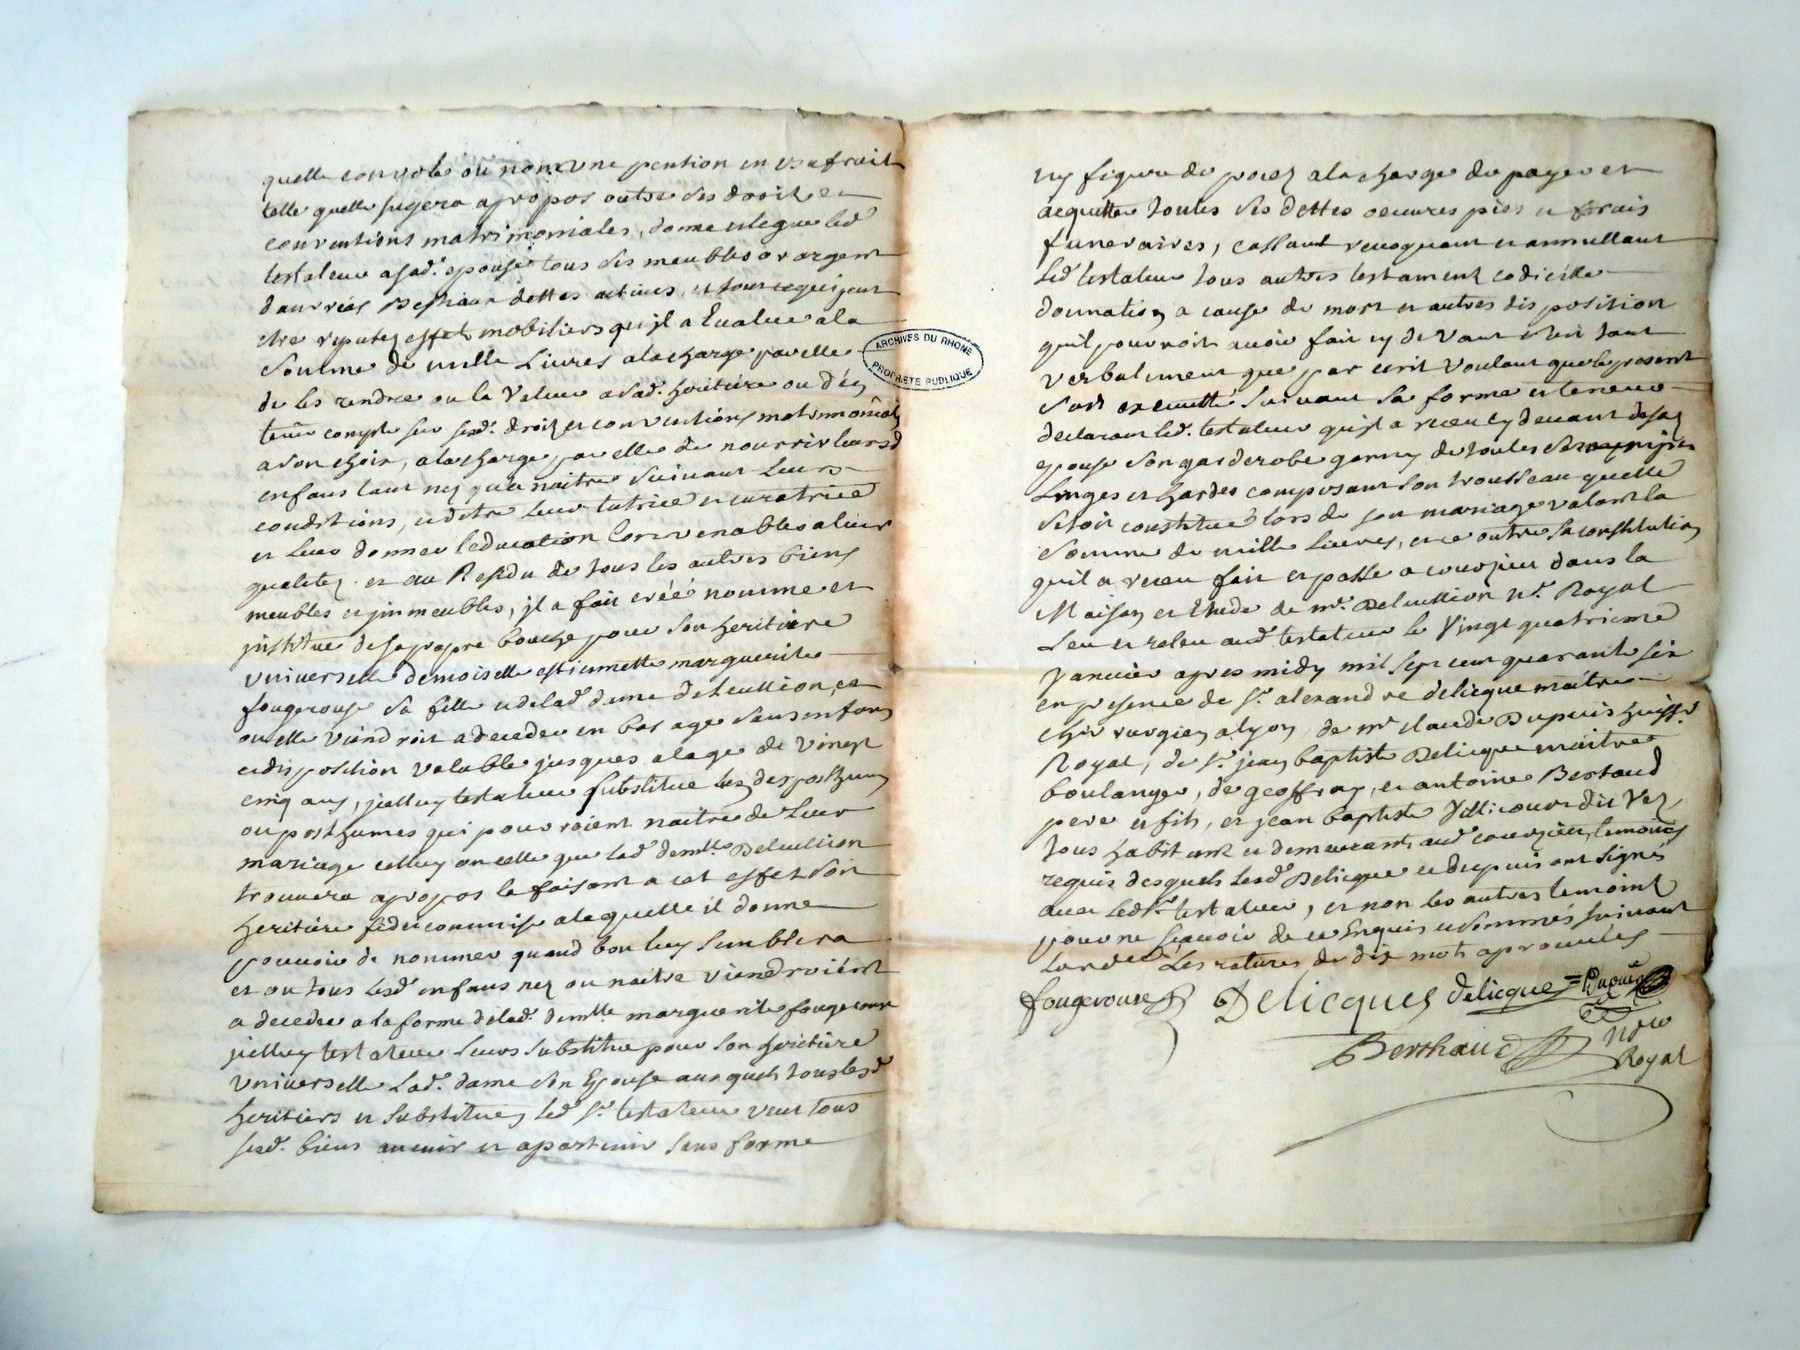 quelle convole ou non une pention en usufruit
telle quelle jugera apropos outre ses droit et
conventions matrimoniales, donne et legue led.
testateur a sad. epouse tous ses meubles or argent
danrrées Bestiaux dettes actives et tout ce qui peut
etre reputez effet mobiliers qu'jl a Evalué a la
Somme de mille Livres a la charge par elle
de les rendre ou la Valeur a sad. heritière ou d'en
tenir compte sur sesd. droit et conventions matrimonialles
a son choix, a la charge par elle de nourrir leursd
enfans tant nez qu'a naitre suivant Leurs
conditions, et d'etre leur tutrice et curatrice
et Leur donner l'education Convenables a leur
qualitez. et au Residu de tous les autres biens
meubles et jmmeubles, jl a fait créé nomme et
jnstitue de sa propre bouche pour son heritière
Universelle demoiselle estiennette marguerite
fougerouse sa fille et de lad. dame deleullion, et
ou elle viendroit a deceder en bas age sans enfans
et disposition valable jusques a l'age de vingt
cinq ans, jcelluy testateur substitue les des posthumes
ou posthumes qui pouvroient naitre de Leur
mariage celluy ou celle que lad. demlle. Deleullion
trouvera apropos le faisant a cet effet son
heritière fideicommise a laquelle il donne
pouvoir de nommer quand bon luy semblera
et ou tous lesd. enfans nez ou naitre viendroient
a deceder a la forme de lad. demlle marguerite fougerouse
jcelluy testateur leurs substitue pour son heritière
Universelle Lad. dame son Epouse aux quels tous lesd.
heritiers et substitues led. sr. testateur veut tous
sesd. biens avenir et apartenir sans forme
ny figure de procez a la charge de payer et
acquitter toutes ses dettes oeuvres pies et frais
funeraires, cassant revoquant et annullant
led. testateur tous autres testament codicille
donnation a cause de mort et autres disposition
qu'il pouvroit avoir fait cy devant et tant
verbalement que par ecrit voulant que le present
soit executté suivant sa forme et teneur
declarant led. testateur qu'jl a receu cy devant de sad.
epouse son garderobe garny de toutes ses
Linges et hardes composant son trousseau quelle
s'etoit constitué lors de son mariage valant la
somme de mille livres, et ce outre sa constitution
qu'il a receu fait et passé a courzieu dans la
Maison et Etude de me. Deleullion nre. Royal
Leu et releu aud. testateur le Vingt quatrieme
Janvier apres midy mil sept cent quarante six
en presence de sr. alexandre delicque maitre
chirurgien a lyon, de me Claude Dupuis huissr.
Royal, de sr. jean baptiste Delicque maitre
boulanger, de geoffray, et antoine Bertaud
pere et fils, et jean baptiste Villicour dit Vez,
tous habitant et demeurants aud. courzieu, temoins
requis desquels lesd. Delicque et dupuis ont signés
avec led. sr. testateur, et non les autres temoins
pour ne sçavoir de ce Enquis et sommés suivant
Lord. Les ratures de dix mots aprouvées
fougerouse Delicques delicque Dupuis
Berthaud nre
Royal
ARCHIVES DU RHONE
PROPRIETE PUBLIQUE